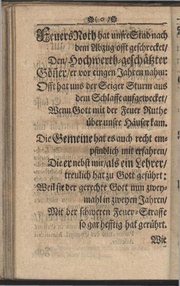 FeuersNoth hat unsre Stad nach
dem Abzug offt geschrecket/
Den/ Hochwerth-geschätzter
Göster/ er vor eingen Jahren nahm:
Offt hat uns der Seiger Sturm aus
dem Schlaffe aufgewecket/
Wenn Gott mit der Feuer Ruthe
über unsre Häuser kam.
Die Gemeine hat es auch recht em-
pfindlich mit erfahren/
Die er nebst mir/ als ein Lehrer/
treulich hat zu Gott geführt:
Weil sie der gerechte Gott nun zwey-
mahl in zweyen Jahren/
Mit der schweren Feuer-Straffe
so gar hefftig hat gerührt.
Wie